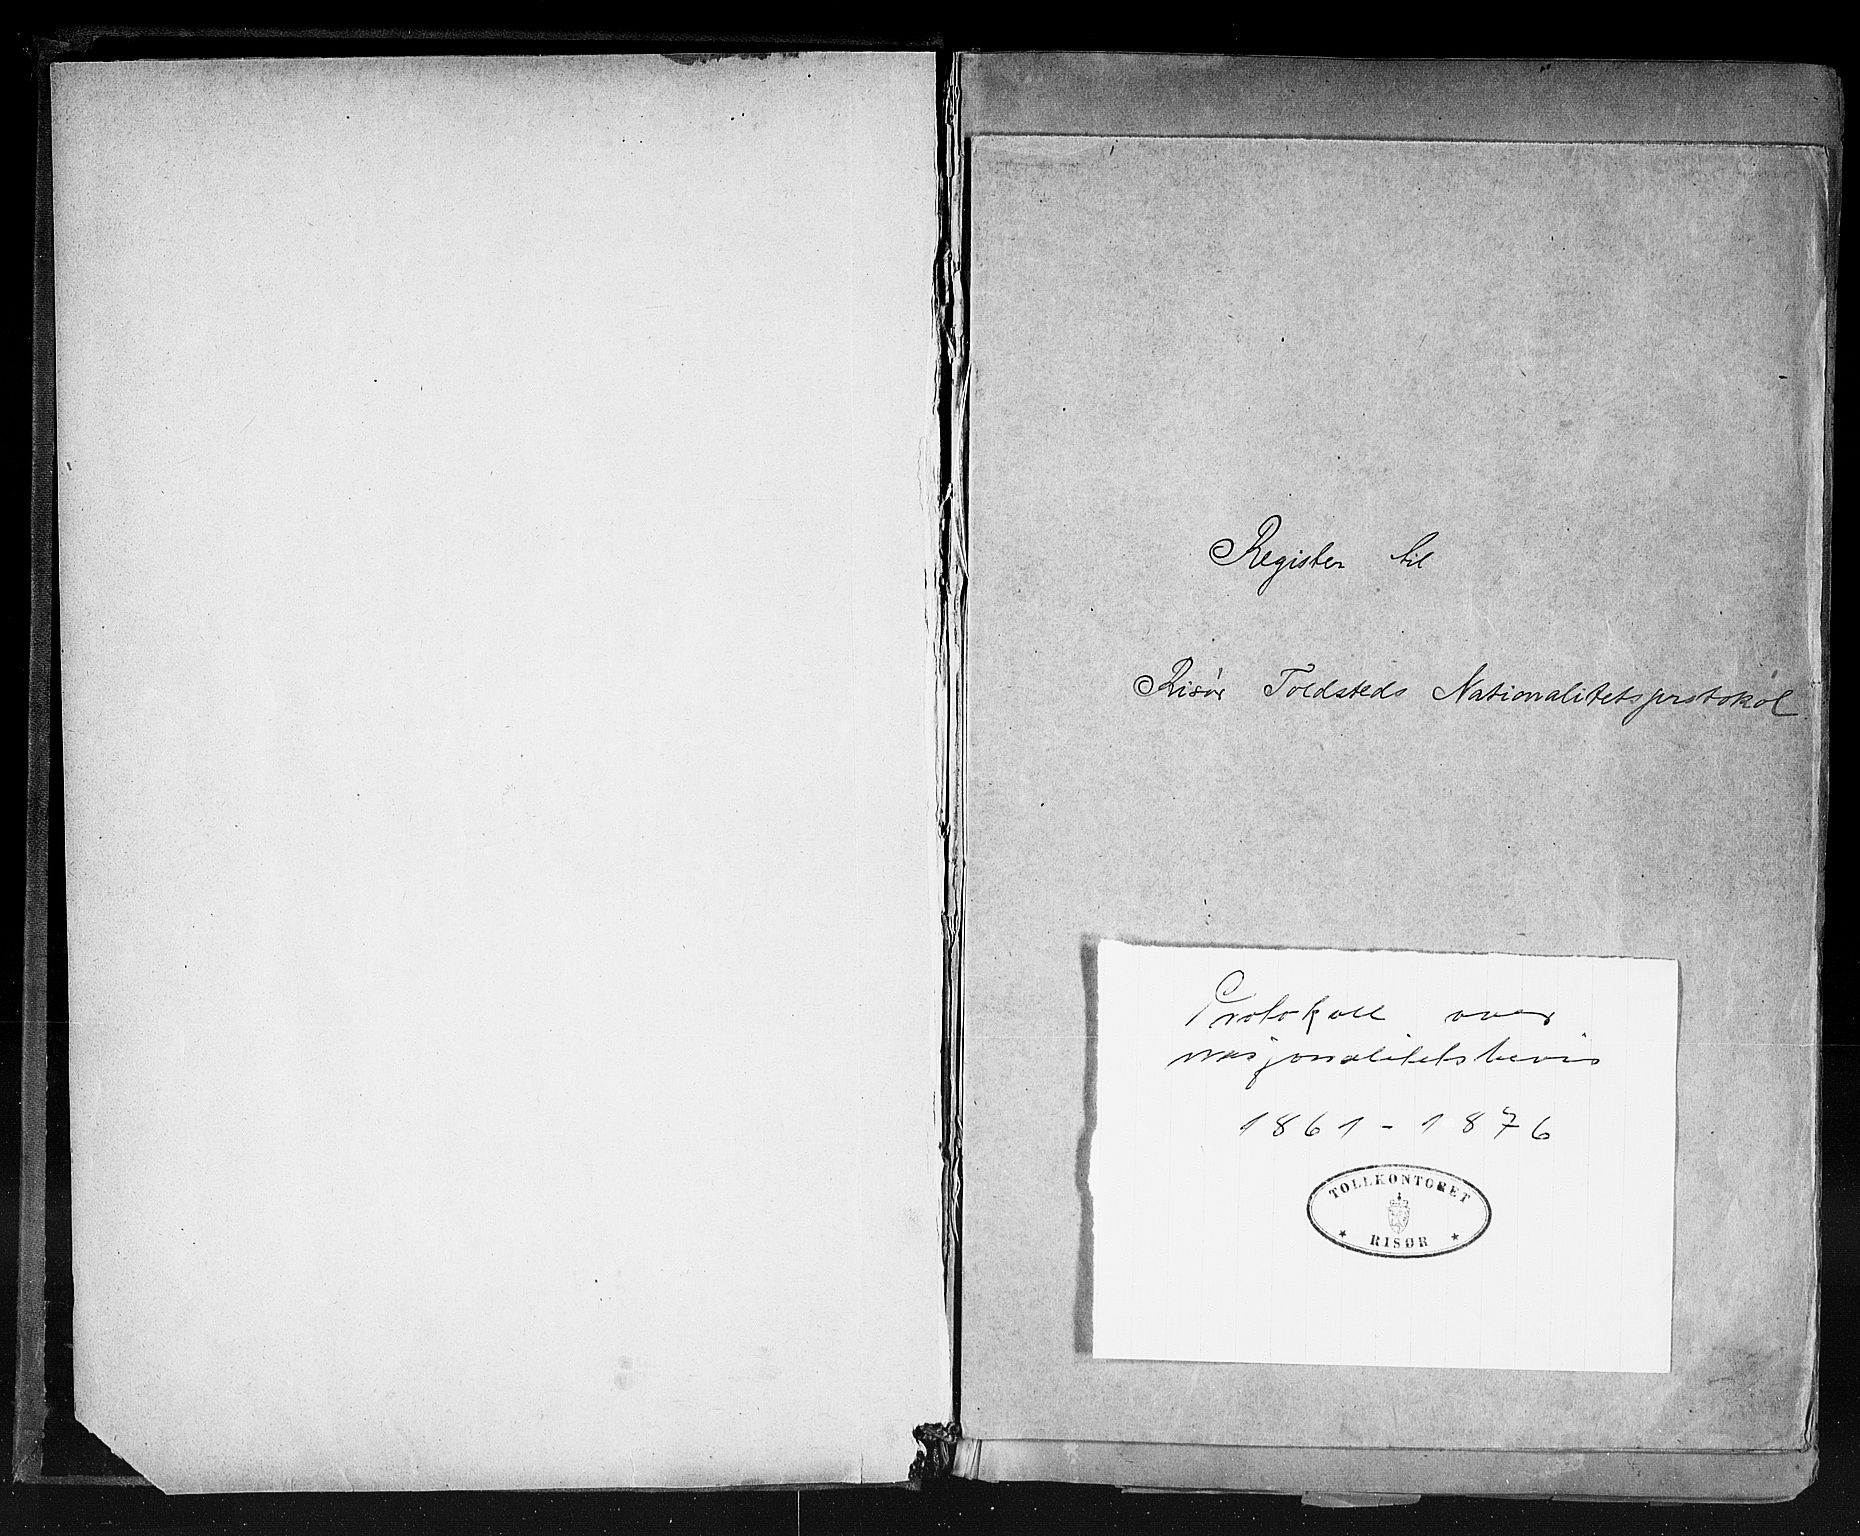 Register til
Risör Toldsteds Nationalitetsprotokol
Protokoll over
nasjonalitetsbevis
1861-1876
TOLLKONTORET
RISØR